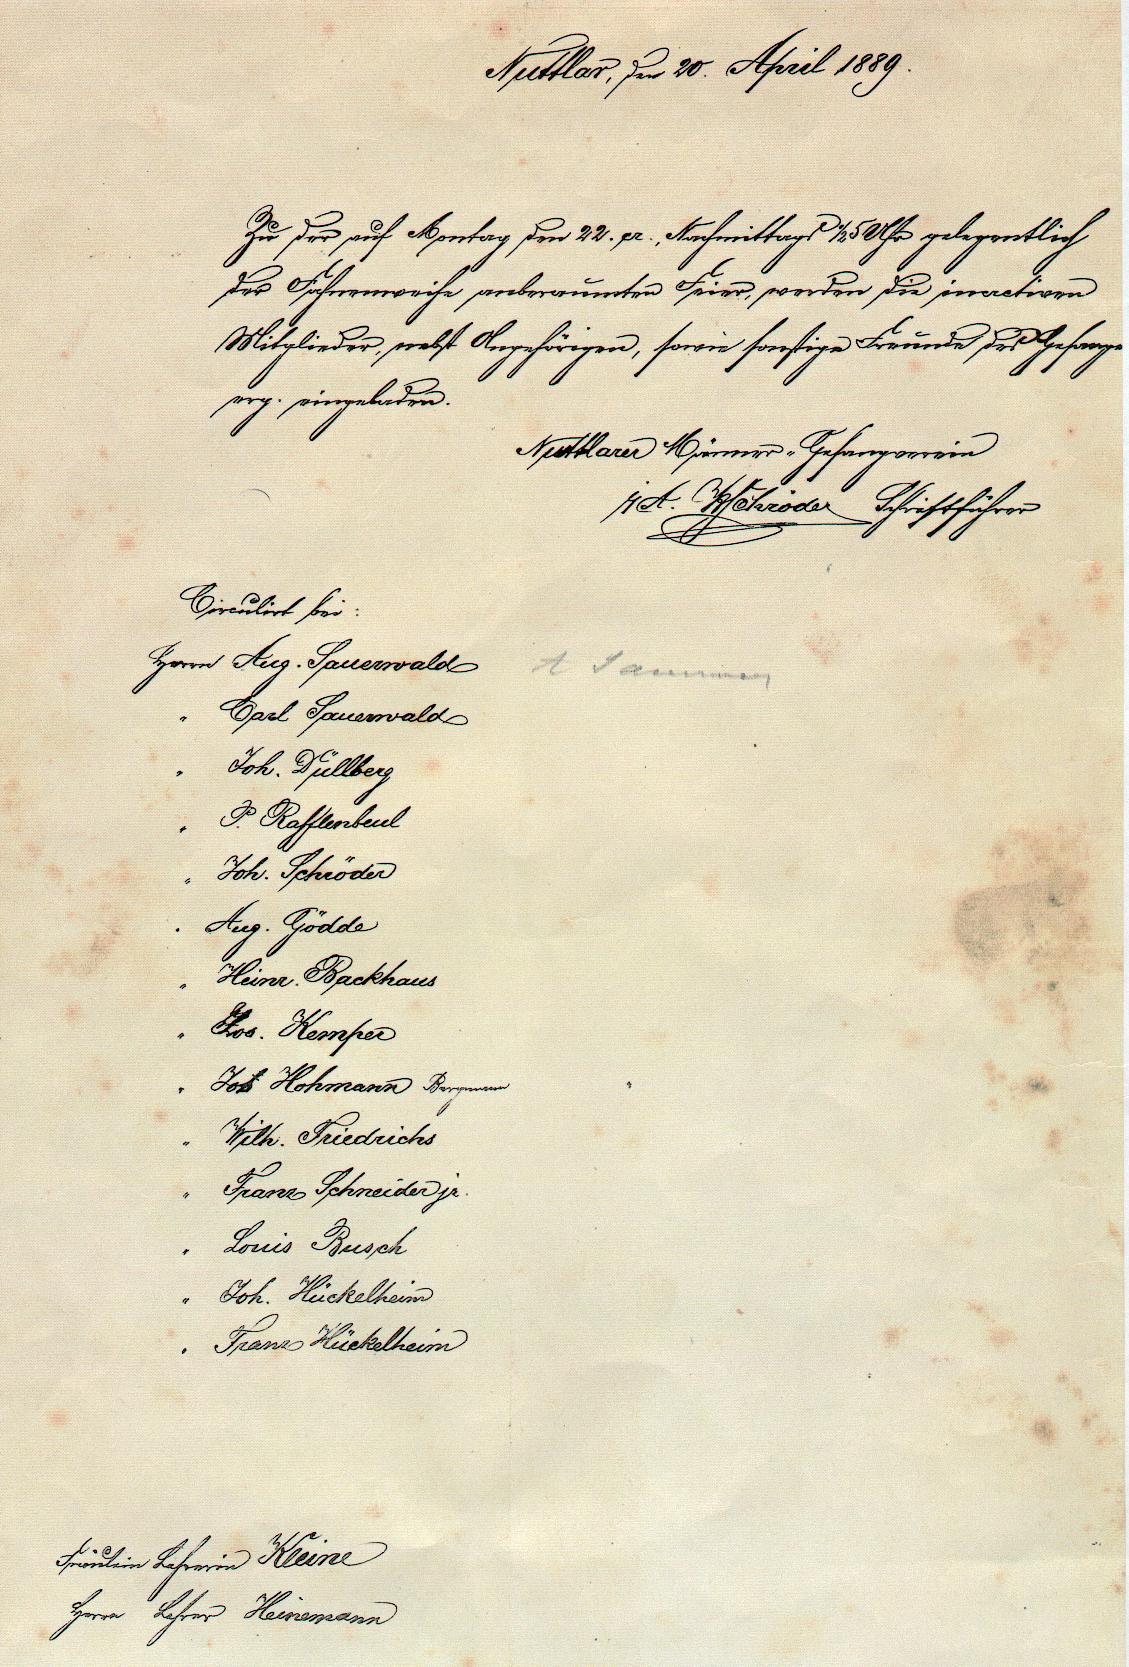 Nuttlar, den 20. April 1889.
Zu der auf Montag den 22. cr., Nachmittags ½5 Uhr gelegentlich
der Fahnenweihe anberaumten Feier, werden die inactiven
Mitglieder, nebst Angehörigen, sowie sonstige Freunde des Gesanges
erg. eingeladen.
Nuttlarer Männer-Gesangverein
i/A. W Schröder Schriftführer
Circulirt bei:
Herrn Aug. Sauerwald
" Carl Sauerwald
" Joh. Düllberg
" P. Rafflenbeul
" Joh. Schröder
" Aug. Gödde
" Heinr. Backhaus
" Jos. Kemper
" Jos Hohmann Bergmann "
" Wilh. Friedrichs
" Franz Schneider jr.
" Louis Busch
" Joh. Hückelheim
" Franz Hückelheim
Fräulein Lehrerin Kleine
Herrn Lehrer Heinemann